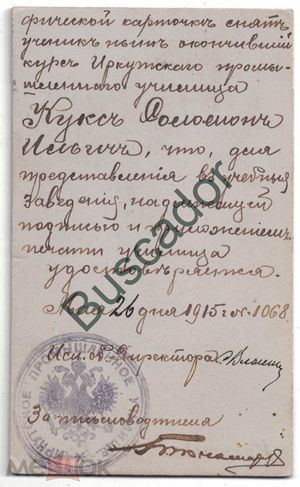 фической карточкѣ снятъ
ученикъ нынѣ окончившій
курсъ Иркутскаго промы-
шленнаго училища
Куксъ Соломонъ
что, для
представленія въ учебныя
заведенія, надлежащей
подписью и приложеніемъ
печати училища
удостовѣряется.
Мая 26 дня 1915 г. № 1068.
Исп. об. Директора
За письмоводителя
Buscador